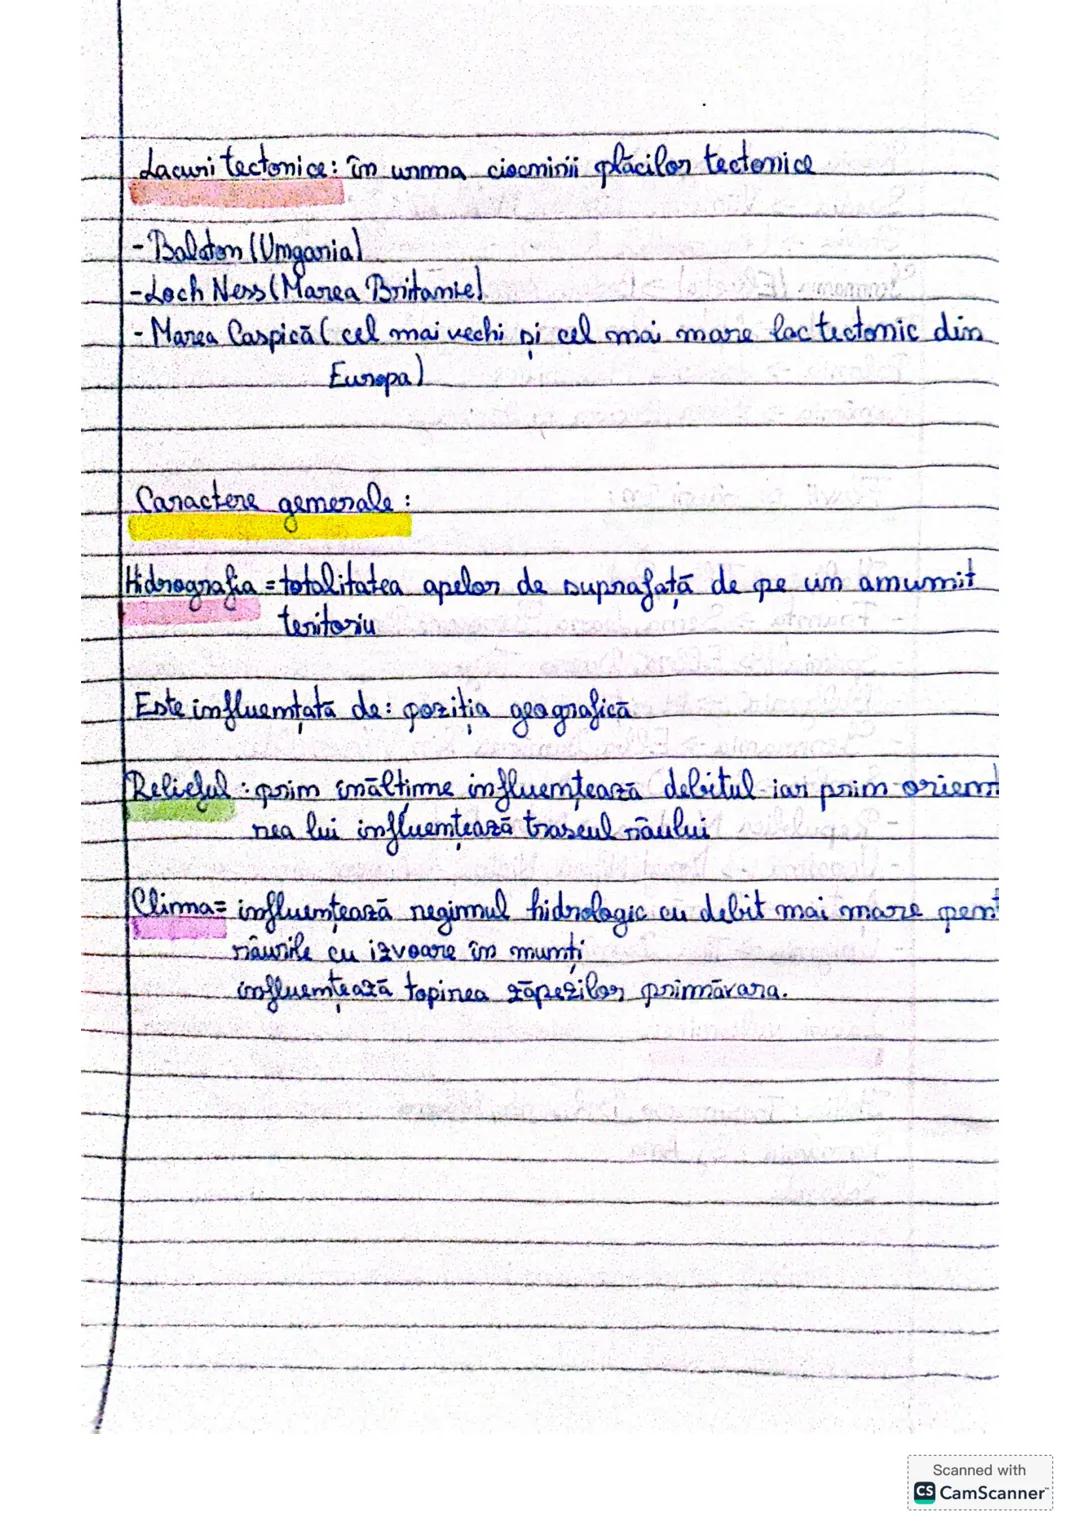 Lacuri tectonice: în urma ciocnirii plăcilor tectonice
- Balaton (Ungaria)
- Loch Ness (Marea Britanie)
- Marea Caspică (cel mai vechi și cel mai mare lac tectonic din
Europa)
Caractere generale:
Hidrografia = totalitatea apelor de suprafață de pe un anumit
teritoriu
Este influențată de: poziția geografică
Relieful: prin înălțime influențează debitul iar prin orient
rea lui influențează traseul râului
Clima = influențează regimul hidrologic cu debit mai mare pent
râurile cu izvoare în munți
influențează topirea zăpezilor primăvara.
Scanned with
CS CamScanner